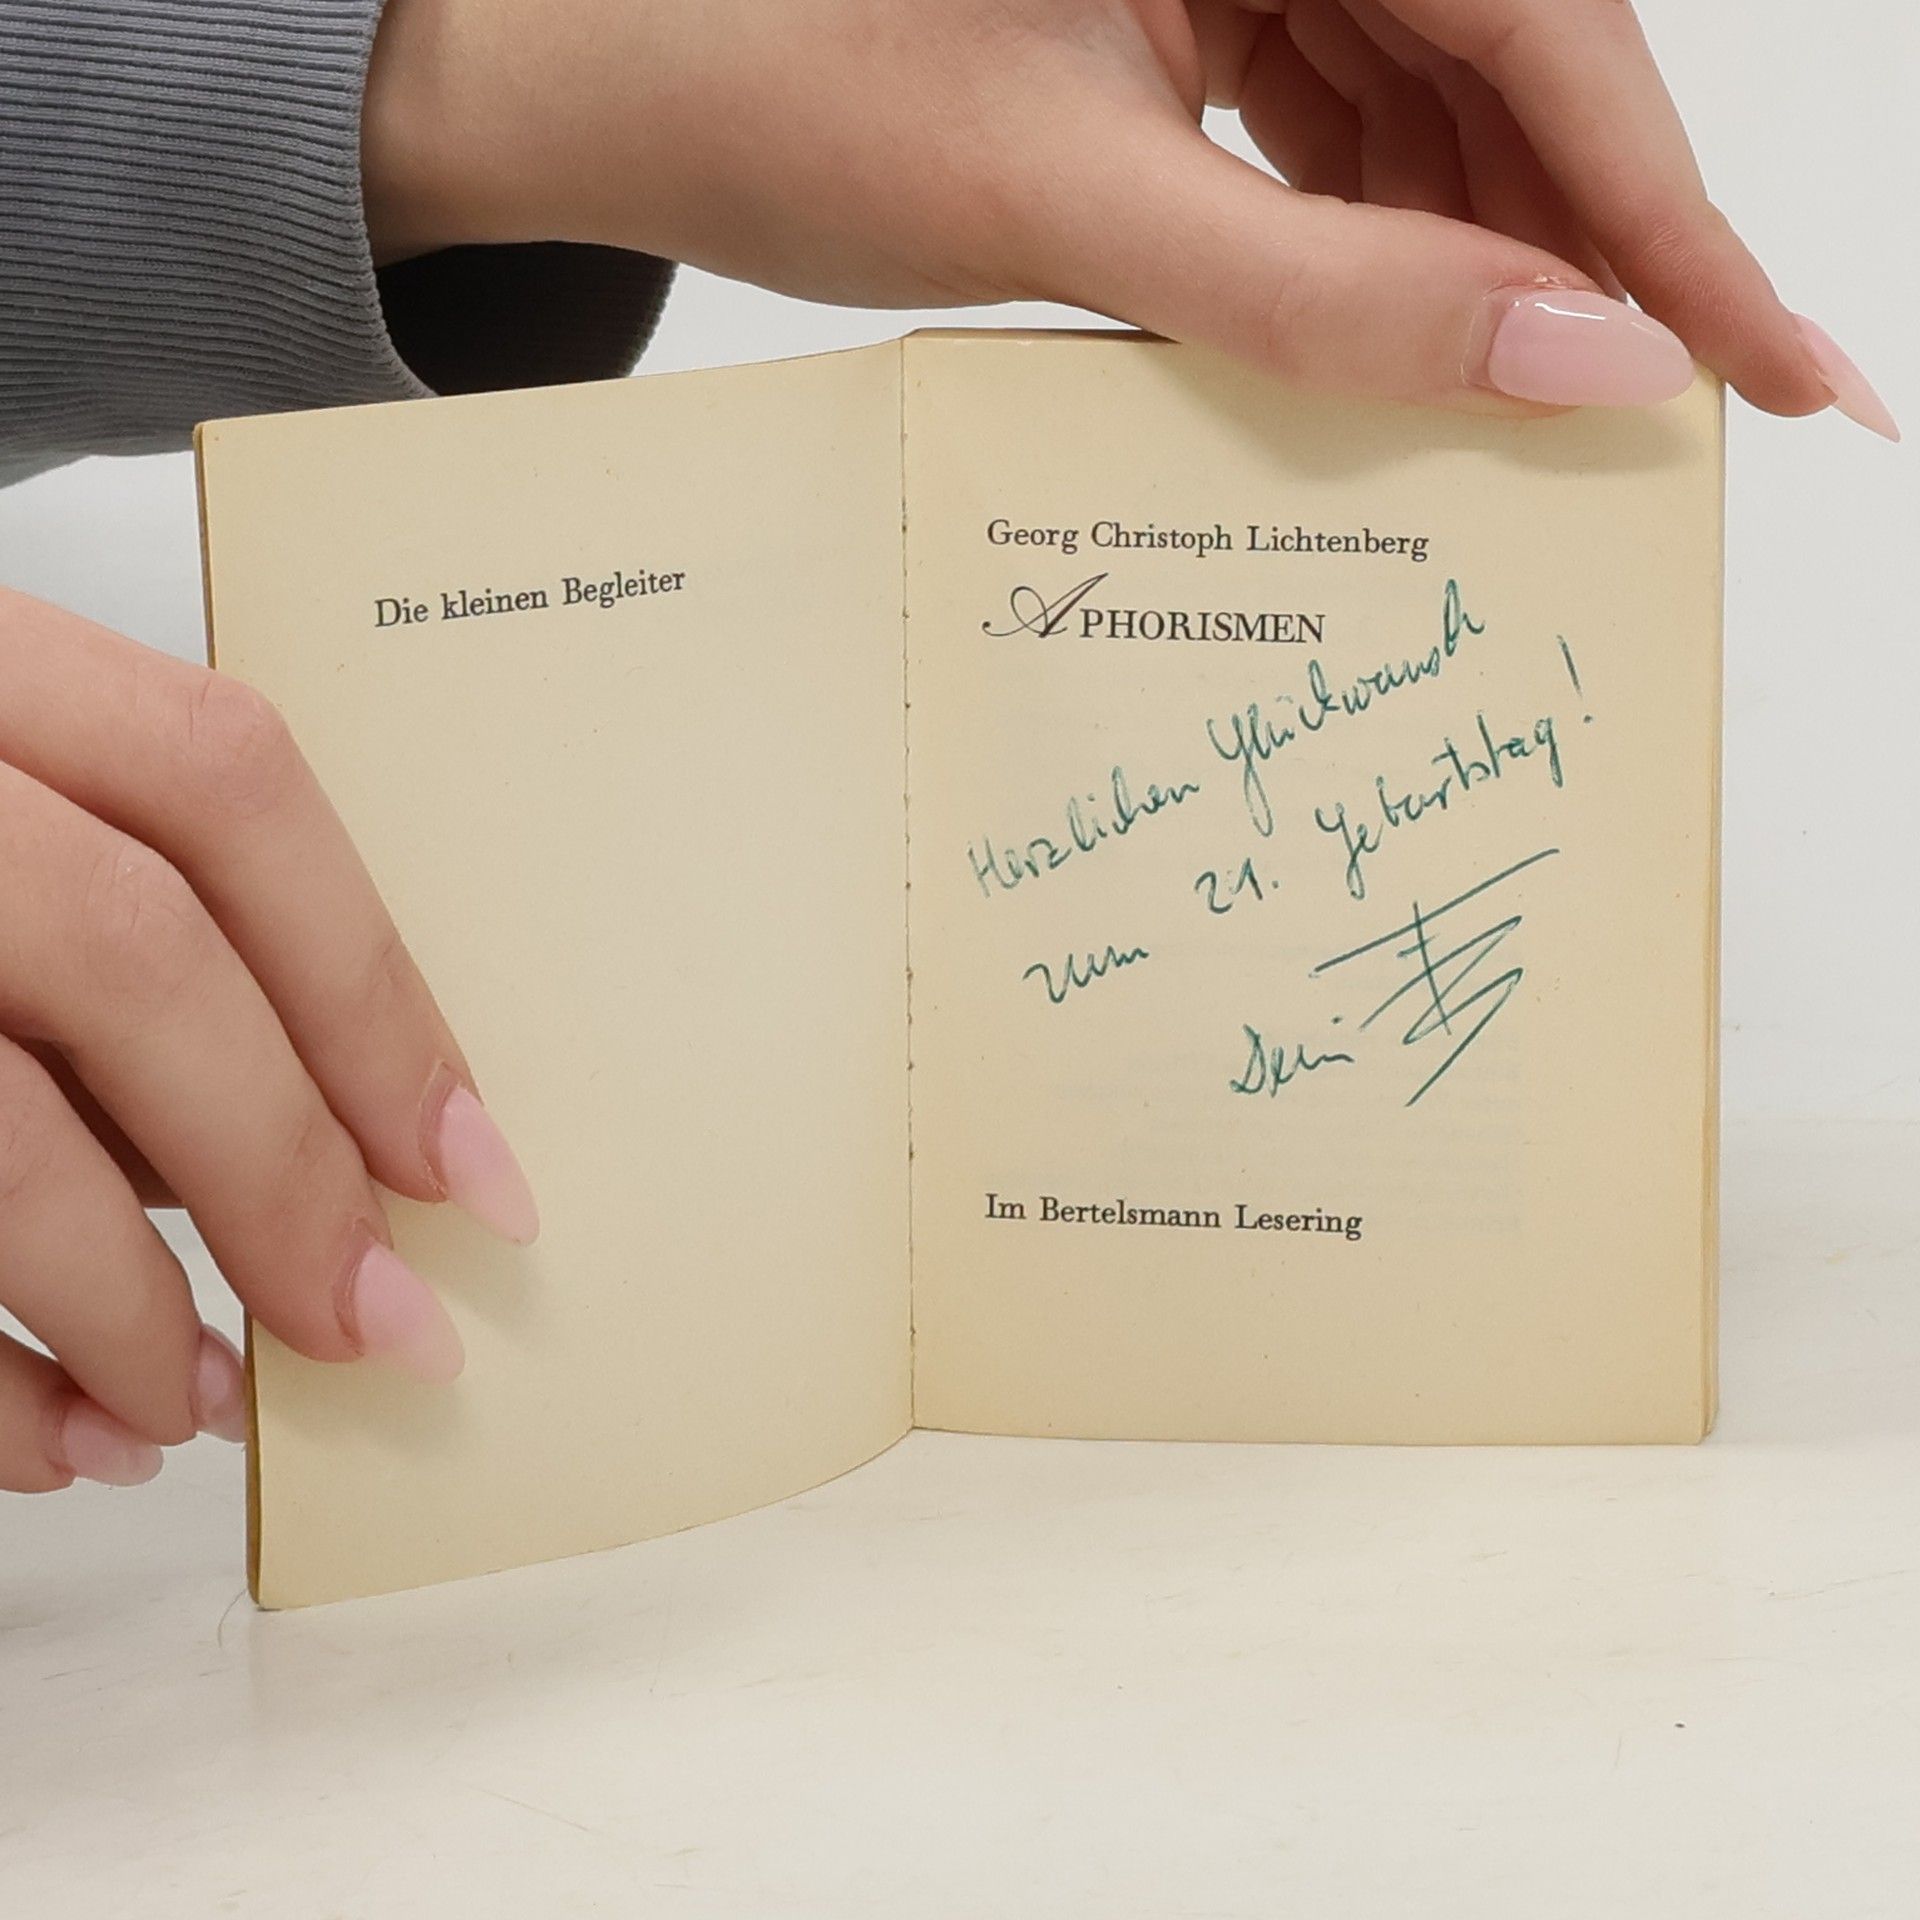 Die kleinen Begleiter
Georg Christoph Lichtenberg
APHORISMEN
Herzlichen Glückwunsch
zum 21. Geburtstag!
Dein
Im Bertelsmann Lesering